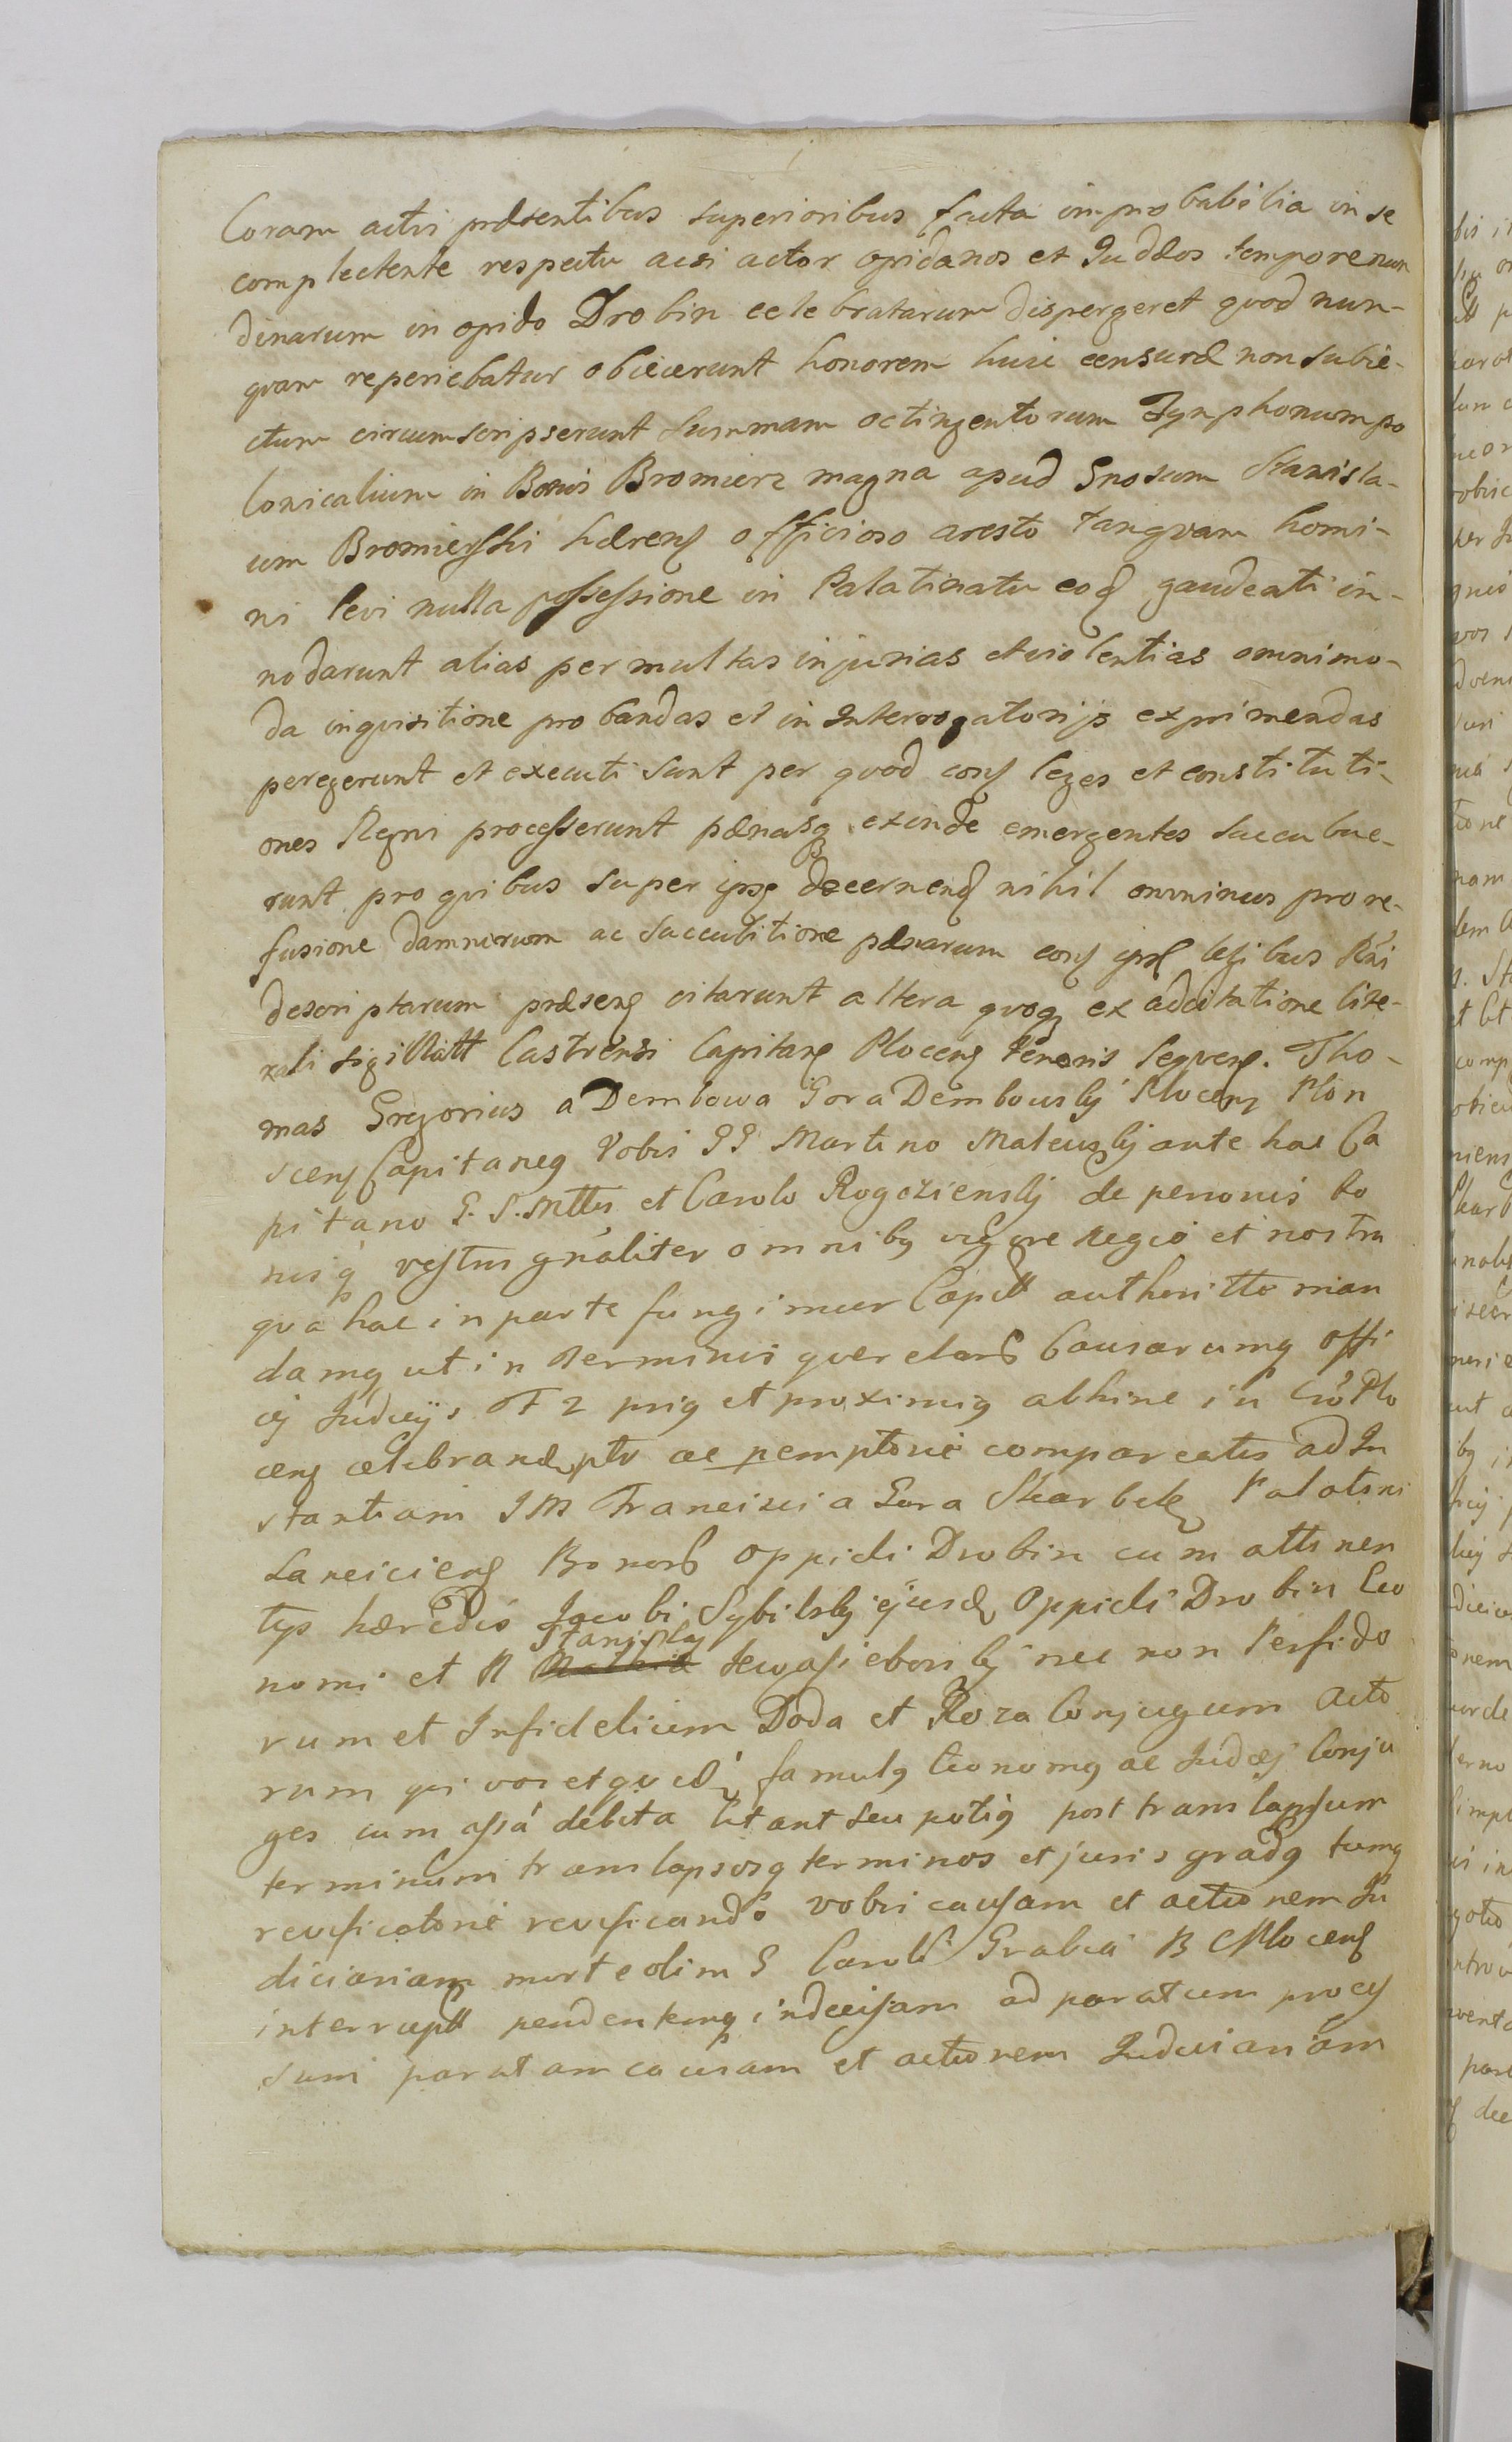 Coram actis præsentibus superioribus facta improbabilia in se
complectente respectu acsi actor opidanos et Judæos tempore nun
dinarum in opido Drobin celebratarum dispergeret quod nun-
quam reperiebatur obiecerunt honorem huic censuræ non subie-
ctum circumscripserunt summam octingentorum Tynphonum po
lonicalium in Bonis Bromierz magna apud Gnosum Stanisla-
um Bromierski hæreng officioso aresto tanquam homi-
ni levi nulla possessione in Palatinatu eod gaudenti in-
nodarunt alias per multas injurias et violentias omnimo-
da inquisitione probandas et in Interrogatorijs exprimendas
peregerunt et executi sunt per quod cong leges et constituti-
ones Regni processerunt pænasq exinde emergentes succubue-
runt pro quibus super ipsg decernend nihil ominus pro re-
fusione damnorum ac succubitione pænarum cong ipsg legibus Rni
descriptarum præseng citarunt altera quoq ex adcitatione lite-
rali sigillatt Castrensi Capitang Ploceng tenoris sequeng. Tho-
mas Gregorius a Dembowa Gora Dembowsky Ploceng Plon
sceng Capitaneg Vobis GG Martino Mateusky ante hac Ca
pitano S. R. Mttis et Carolo Rogoziensky de personis bo
nisq vestris gnaliter omnibg vigore Regio et nostra
qva hac in parte fungimur Capitt authoritte man
damg ut in Terminis querelarb Causarumg Offi
cij Judicijs T 2 prig et proximig abhinc in Cro Plo
ceng celebrand ptr ac pemptorie compareatis ad In
stantiam IM Francisci a Gora Skarbek Palatini
Lanciciens Bonorb Oppidi Drobin cum attinen
tijs hæredis Jacobi Sybilsky ejusd Oppidi Drobin Eco
nomi et N Stanislag Sewasieborsky nec non Perfido
rum et Infidelium Doda et Roza Conjugum Acto
rum qui vos et qvidé famulg Economg ac Judæj Conju
ges cum assa debita citant seu potig post translapsum
terminum translapsosg terminos et juris gradg tumg
revificatorie revificando vobis causam et actionem Ju
diciariam morte olim G Caroli Grabia B C Ploceng
interruptt pendentemg indecisam ad paratum proces
sum paratam causam et actionem Judiciariam